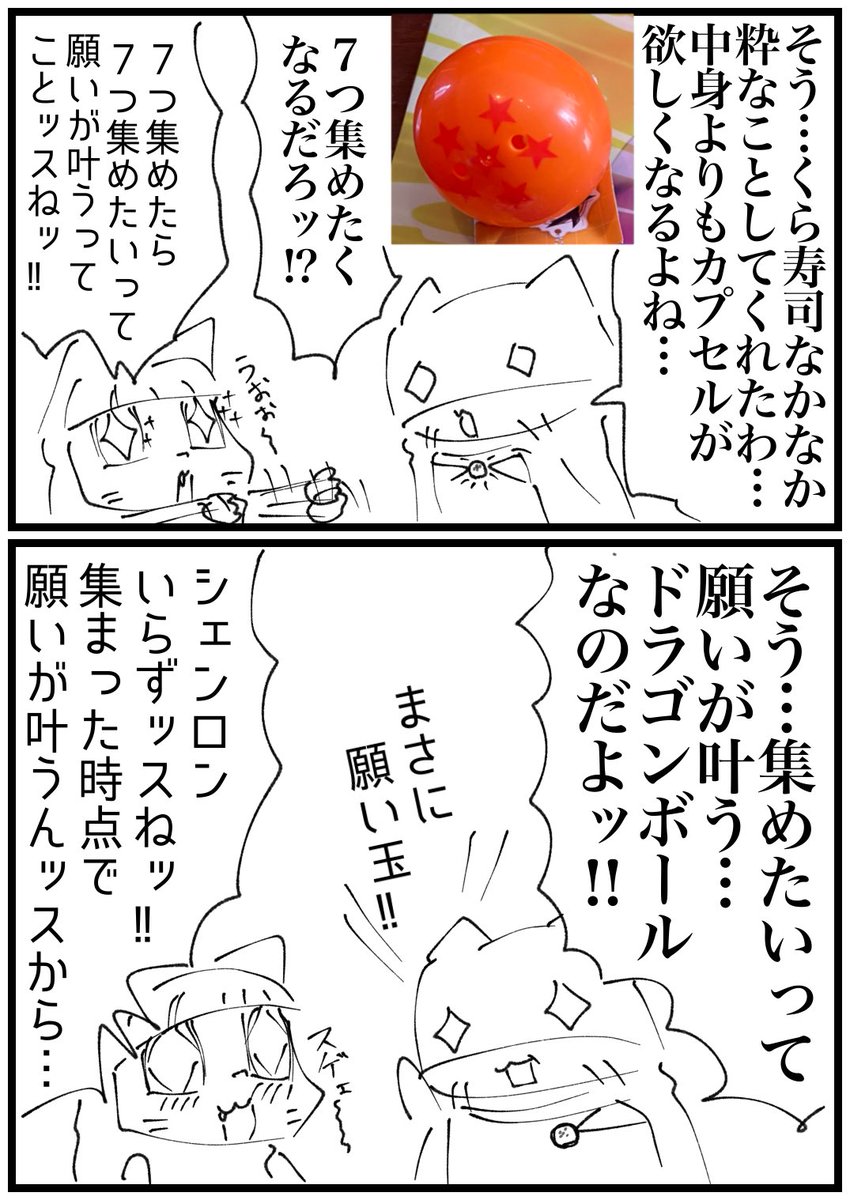 そう…くら寿司なかなか
粋なことしてくれたわ…
中身よりもカプセルが
欲しくなるよね…
７つ集めたく
なるだろッ!?
７つ集めたら
７つ集めたいって
願いが叶うって
ことッスねッ!!
うおお〜
そう…集めたいって
願いが叶う…
ドラゴンボール
なのだよッ!!
まさに
願い玉!!
シェンロン
いらずッスねッ!!
集まった時点で
願いが叶うんッスから…
スゲェ〜